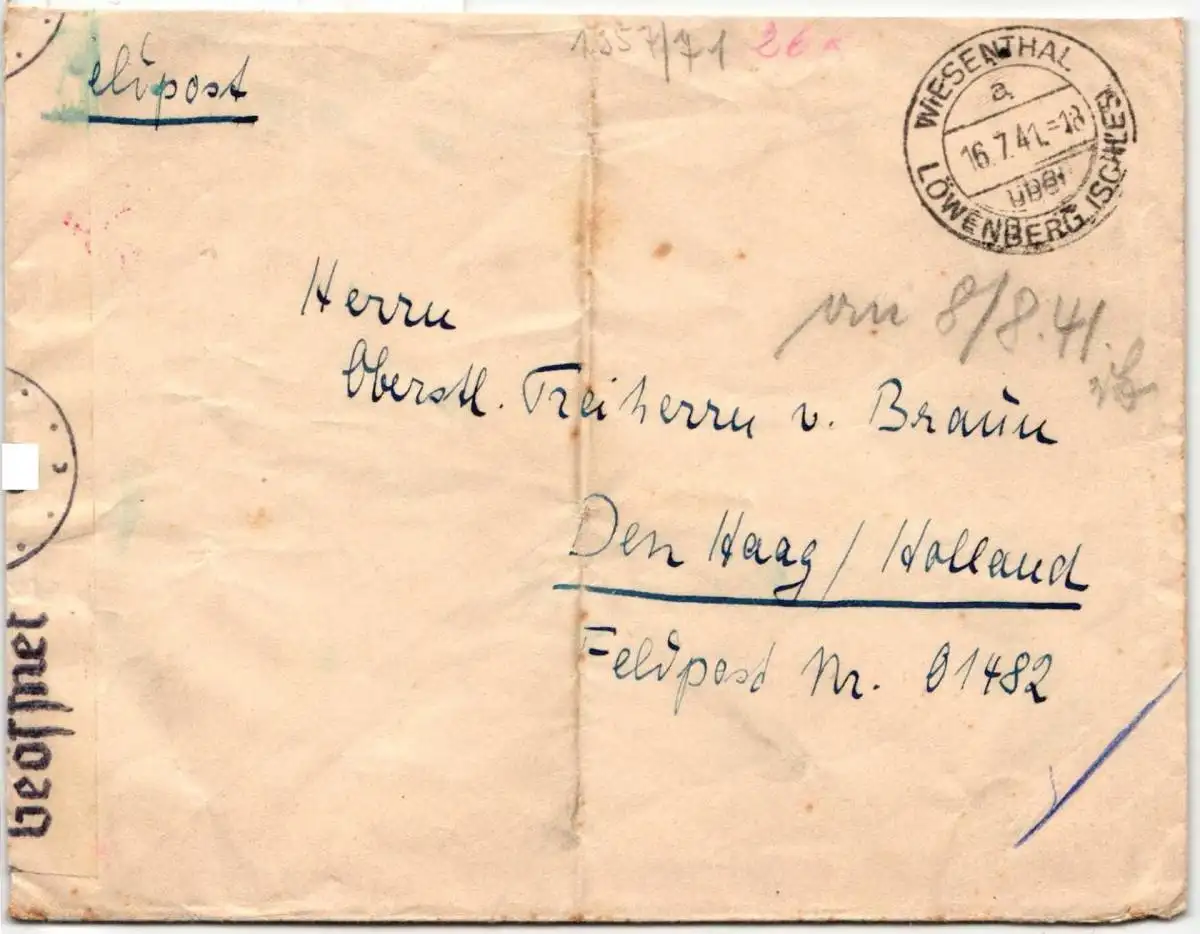 eldpost
1357/71 26
WIESENTHAL
a
16.7.41.-18
über
LÖWENBERG (SCHLES)
8/8.41.
Herrn
Oberstl. Freiherrn v. Braun
Den Haag / Holland
Feldpost Nr. 01482
Geöffnet